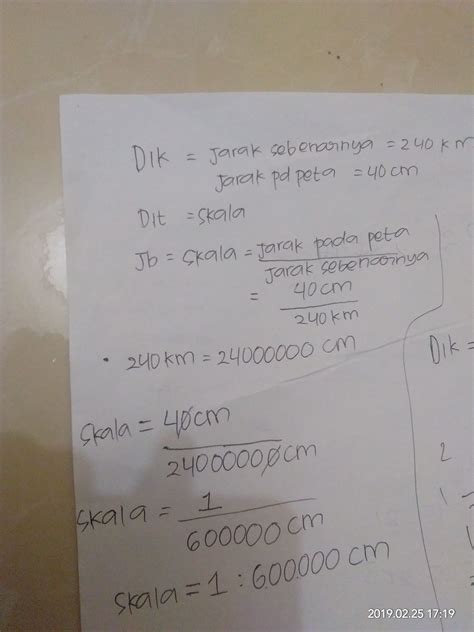 Dik = jarak sebenarnya = 240 km
jarak pd peta = 40 cm
Dit = skala
Jb = skala = jarak pada peta
jarak sebenarnya
= 40 cm
240 km
• 240 km = 24000000 cm
skala = 40 cm
24000000 cm
skala = 1
600000 cm
skala = 1 : 600.000 cm
Dik =
2
1
2019.02.25 17:19